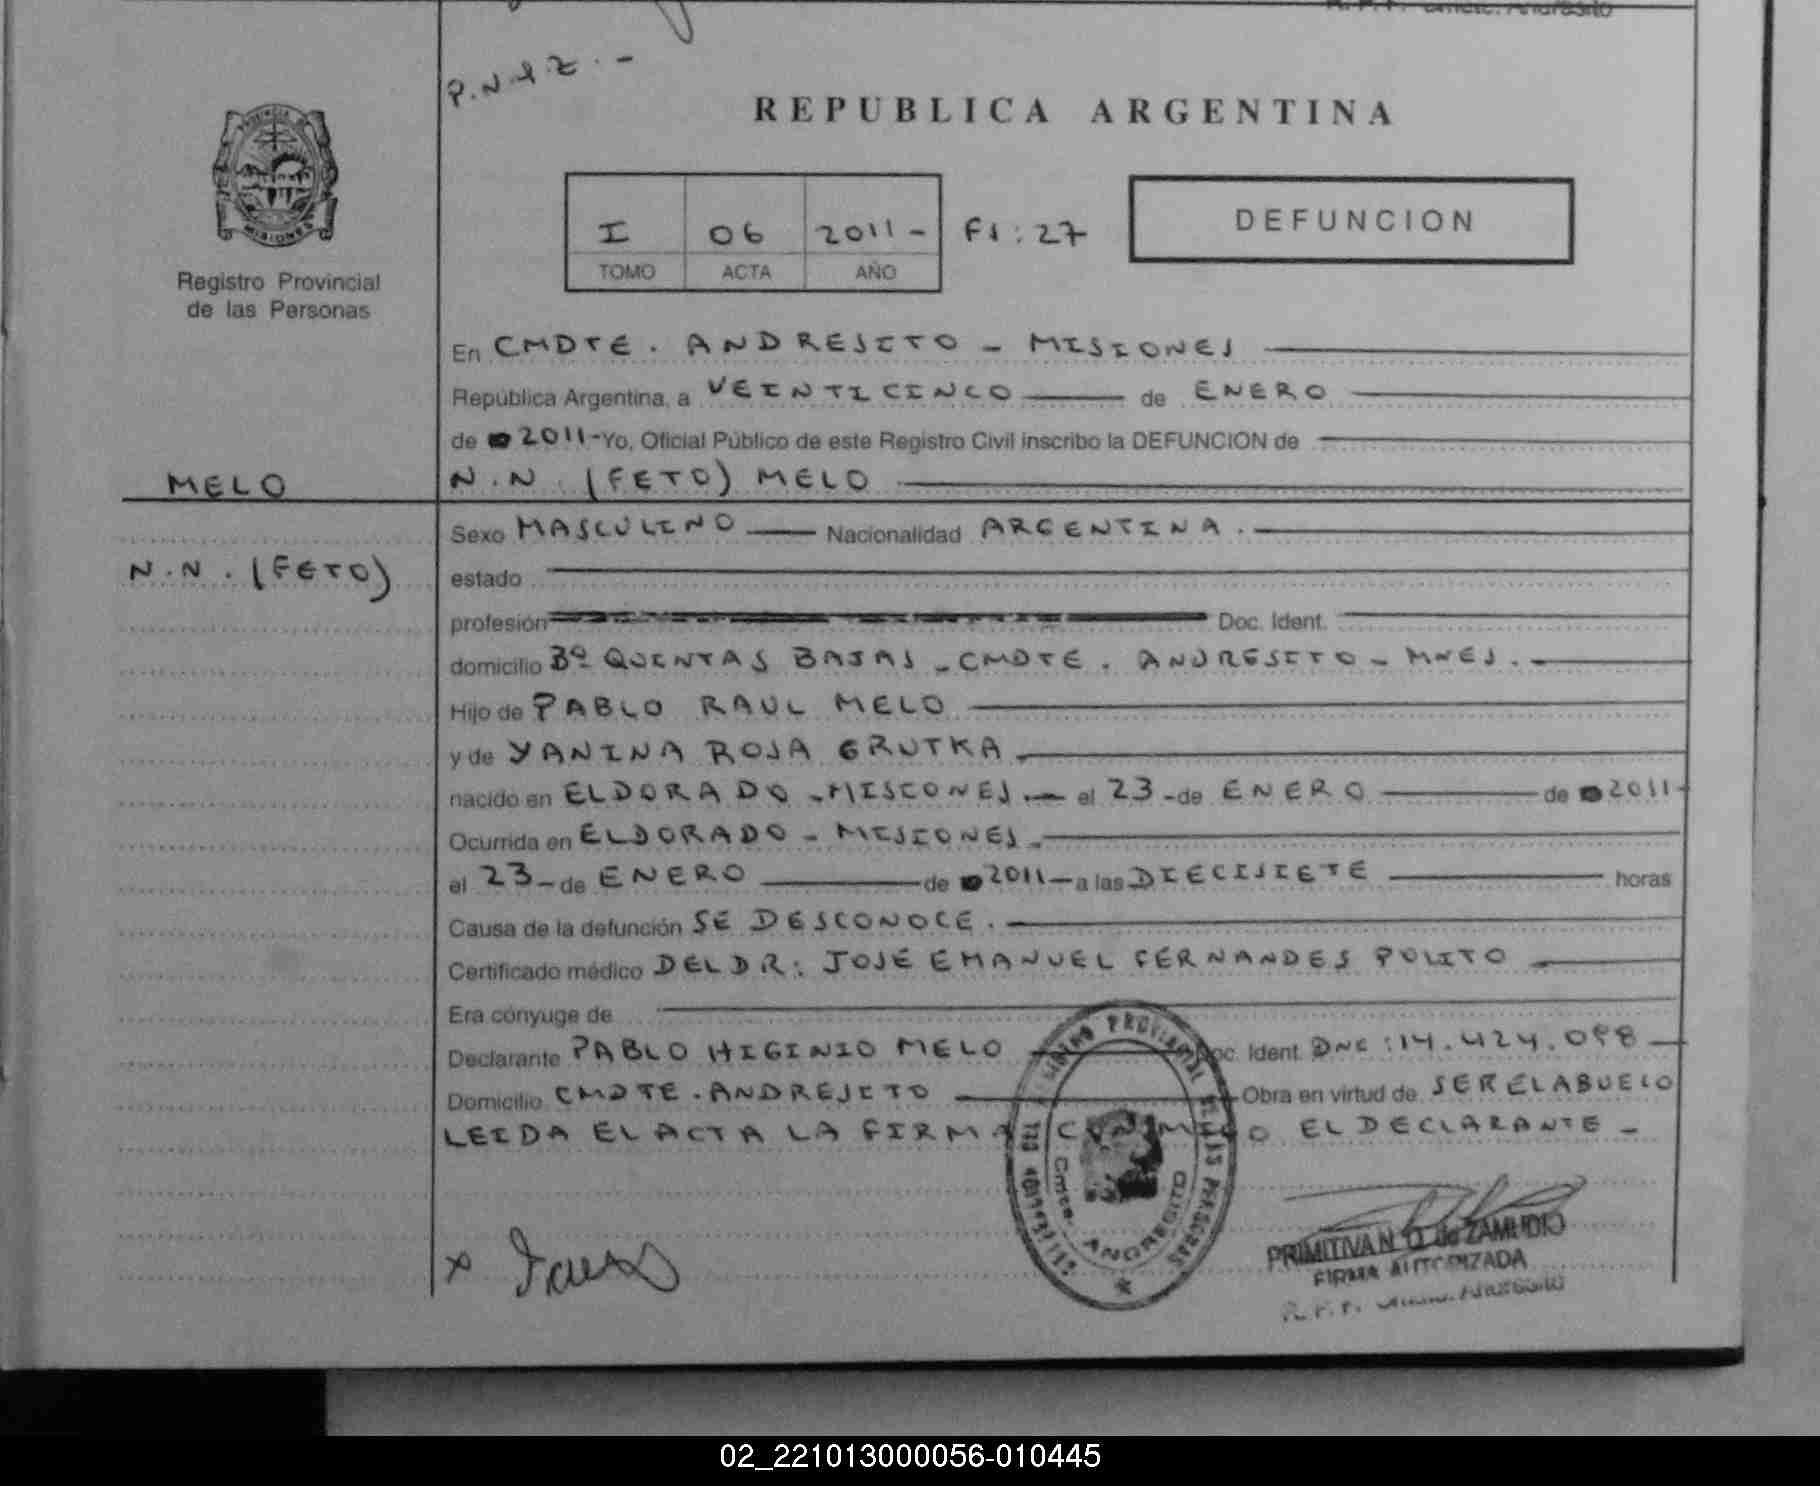 P.N.d.Z.-
REPUBLICA ARGENTINA
I 06 2011- Fs: 27
TOMO ACTA AÑO
DEFUNCION
MISIONES
Registro Provincial
de las Personas
En CMDTE. ANDRESITO - MISIONES
República Argentina, a VEINTICINCO de ENERO
de 2011- Yo, Oficial Público de este Registro Civil inscribo la DEFUNCION de
MELO
N.N. (FETO) MELO
Sexo MASCULINO Nacionalidad ARGENTINA.
N.N. (FETO)
estado
profesión Doc. Ident.
domicilio Bº QUINTAS BAJAS - CMDTE. ANDRESITO - MNES.
Hijo de PABLO RAUL MELO
y de YANINA ROSA GRUTKA
nacido en ELDORADO - MISIONES.- el 23 - de ENERO de 2011-
Ocurrida en ELDORADO - MISIONES.
el 23 - de ENERO de 2011 - a las DIECISIETE horas
Causa de la defunción SE DESCONOCE.
Certificado médico DEL DR: JOSÉ EMANUEL FERNANDES POLITO
Era cónyuge de
Declarante PABLO HIGINIO MELO Doc. Ident. DNI: 14.424.098
Domicilio CMDTE. ANDRESITO Obra en virtud de SER EL ABUELO
LEIDA EL ACTA LA FIRMA CONMIGO EL DECLARANTE -
PROVINCIAL DE LAS PERSONAS
Cmte. ANDRESITO
x
PRIMITIVA N. O. de ZAMUDIO
FIRMA AUTORIZADA
R.P.P. Cmdte. Andresito
02_221013000056-010445